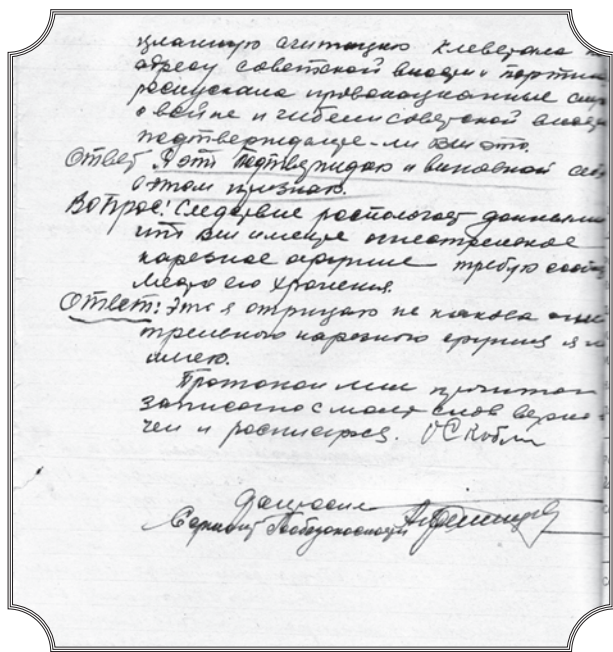 агитацию клеветала
адресу советской власти партии
распускала провокационные
о войне и гибели советской
подтверждаете-ли вы это.
Ответ Я это подтверждаю и виновной
в этом признаю.
Вопрос! Следствие распологает
что вы имеете огнестрельное
нарезное оружие требую
место его хранения.
Ответ: Это я отрицаю не какова
нарезного оружия я
имею.
Протокол мне прочитан
записано с моих слов верно
чем и расписуюсь.
Допросил
Сержант Госбезопасности